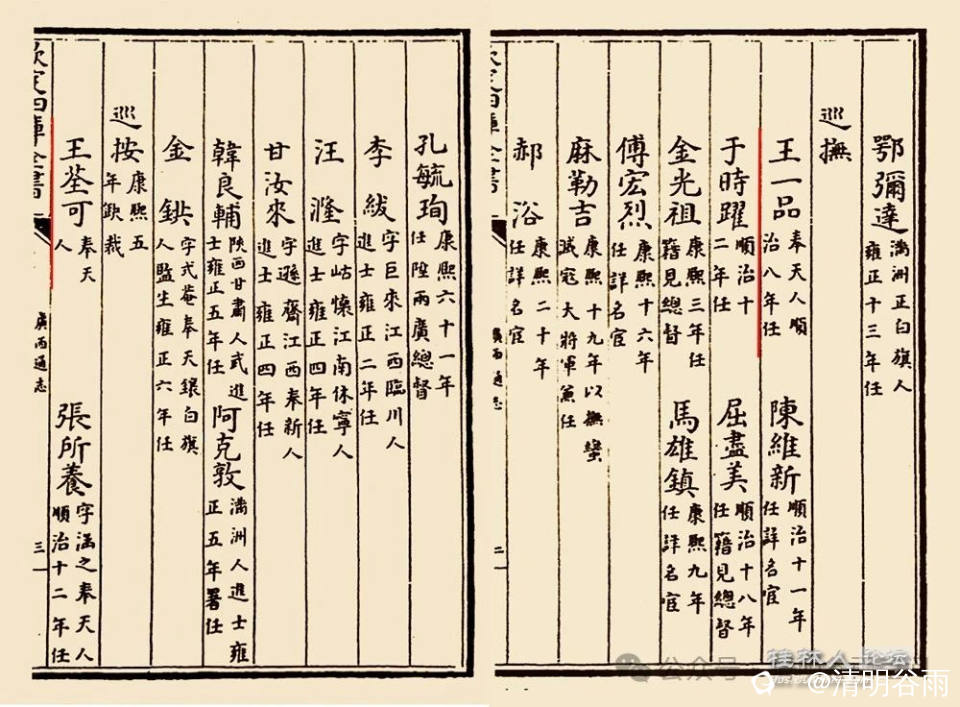 鄂彌達 滿洲正白旗人雍正十三年任
巡撫
王一品 奉天人順治八年任 陳維新 順治十一年任詳名宦
于時躍 順治十二年任 屈盡美 順治十八年任籍見總督
金光祖 康熙三年任籍見總督 馬雄鎮 康熙九年任詳名宦
傅宏烈 康熙十六年任詳名宦
麻勒吉 康熙十九年以撫蠻滅寇大將軍兼任
郝浴 康熙二十年任詳名宦
廣西通志
二
欽定四庫全書
孔毓珣 康熙六十一年任陞兩廣總督
李紱 字巨來江西臨川人進士雍正二年任
汪漋 字岵懷江南休寧人進士雍正四年任
甘汝來 字遜齋江西奉新人進士雍正四年任
韓良輔 陝西甘肅人武進士雍正五年任 阿克敦 滿洲人進士雍正五年署任
金鉷 字式菴奉天鑲白旗人監生雍正六年任
巡按 康熙五年缺裁
王荃可 奉天人 張所養 字涵之奉天人順治十二年任
欽定四庫全書
廣西通志
三
公众号
桂林人论坛
@清明谷雨